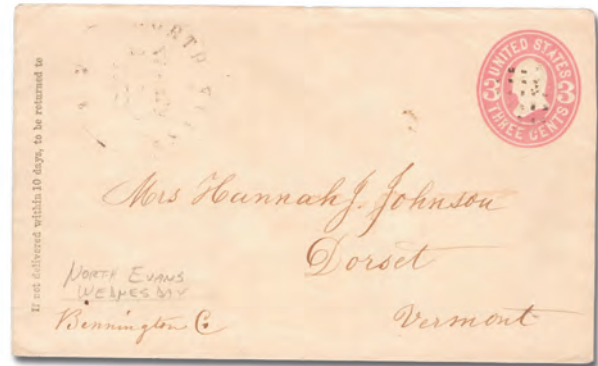 If not delivered within 10 days, to be returned to
NORTH
UNITED STATES
3 3
THREE CENTS
Mrs Hannah J. Johnson
Dorset
NORTH EVANS
WEDNESDAY
Bennington Co
Vermont